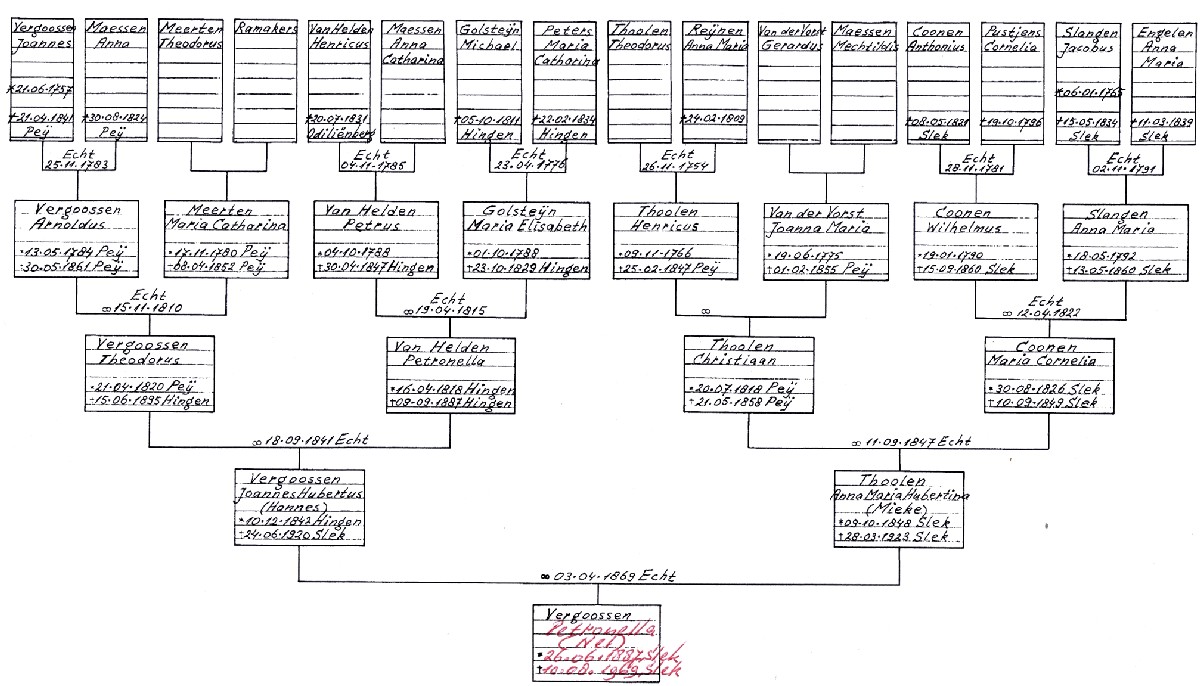 Vergoossen
Joannes
*21.06.1757
†21.04.1841
Peÿ
Maessen
Anna
*30.08.1824
Peÿ
Meerten
Theodorus
Ramakers
Van Helden
Henricus
†20.07.1831
Odiliënberg
Maessen
Anna
Catharina
Golsteÿn
Michael
†05.10.1811
Hingen
Peters
Maria
Catharina
†22.02.1834
Hingen
Thoolen
Theodorus
Reÿnen
Anna Maria
†24.02.1809
Van der Vorst
Gerardus
Maessen
Mechtildis
Coonen
Anthonius
†08.05.1821
Slek
Pustjens
Cornelia
†19.10.1796
Slangen
Jacobus
*06.01.1765
†15.05.1834
Slek
Engelen
Anna
Maria
†11.03.1839
Slek
Echt
25.11.1783
Echt
04.11.1785
Echt
23.04.1776
Echt
26.11.1754
Echt
28.11.1781
Echt
02.11.1791
Vergoossen
Arnoldus
*13.05.1784 Peÿ
†30.05.1861 Peÿ
Meerten
Maria Catharina
*17.11.1780 Peÿ
†08.04.1852 Peÿ
Van Helden
Petrus
*04.10.1788
†30.04.1847 Hingen
Golsteÿn
Maria Elisabeth
*01.10.1788
†23.10.1829 Hingen
Thoolen
Henricus
*09.11.1766
†25.02.1847 Peÿ
Van der Vorst
Joanna Maria
*19.06.1775
†01.02.1855 Peÿ
Coonen
Wilhelmus
*19.01.1790
†15.09.1860 Slek
Slangen
Anna Maria
*18.05.1792
†13.05.1860 Slek
Echt
∞ 15.11.1810
Echt
∞ 19.04.1815
∞
Echt
∞ 12.04.1822
Vergoossen
Theodorus
*21.04.1820 Peÿ
†15.06.1895 Hingen
Van Helden
Petronella
*16.04.1818 Hingen
†09.09.1887 Hingen
Thoolen
Christiaan
*20.07.1818 Peÿ
†21.05.1858 Peÿ
Coonen
Maria Cornelia
*30.08.1826 Slek
†10.09.1849 Slek
∞ 18.09.1841 Echt
∞ 11.09.1847 Echt
Vergoossen
Joannes Hubertus
(Hannes)
*10.12.1842 Hingen
†24.06.1920 Slek
Thoolen
Anna Maria Hubertina
(Mieke)
*09.10.1848 Slek
†28.03.1923 Slek
∞ 03.04.1869 Echt
Vergoossen
Petronella
(Nel)
*26.06.1887 Slek
†10.08.1969 Slek